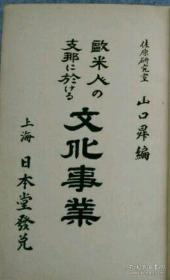 佐原研究室
山口昇編
歐米人の
支那に於ける
文化事業
上海 日本堂發兌